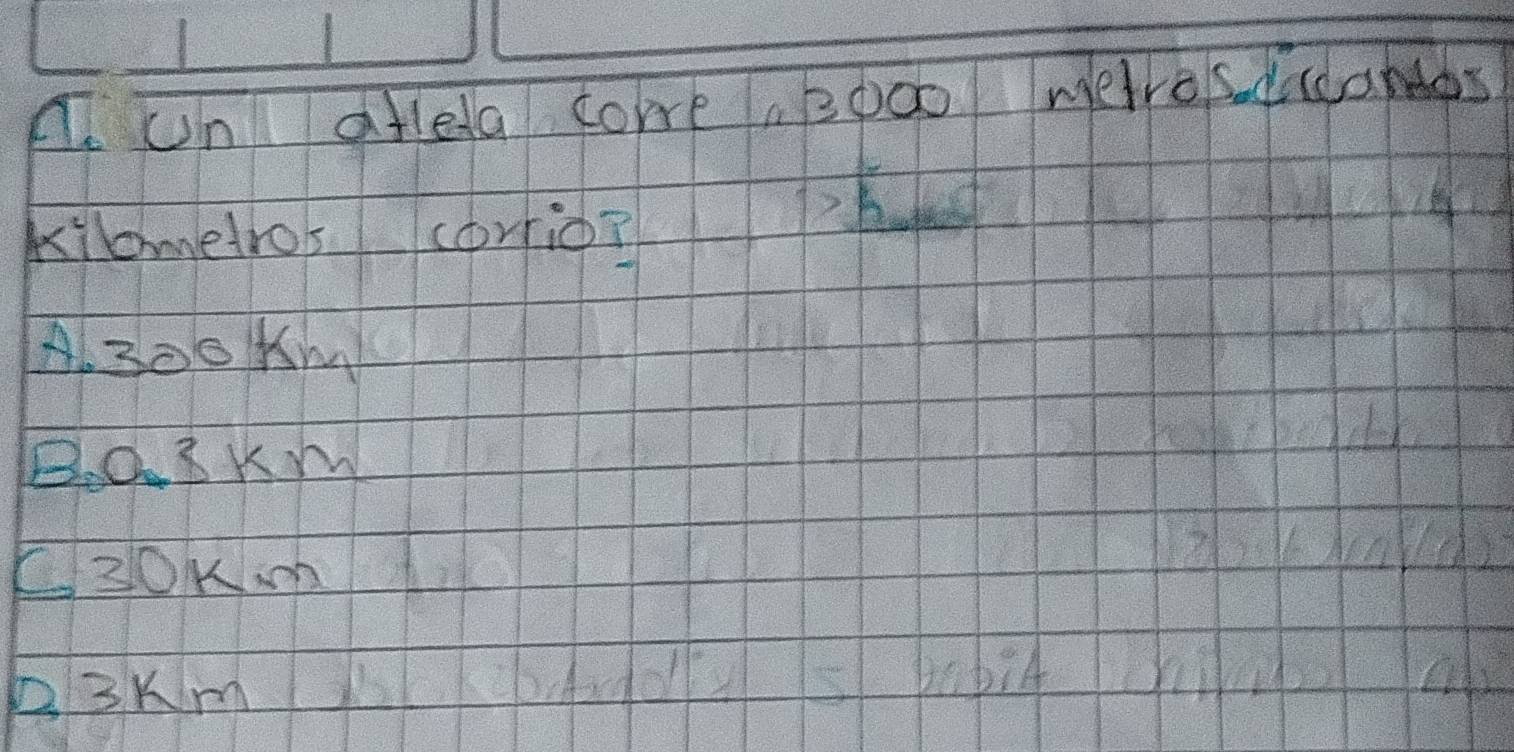 A. Un atleta corre 3000 metros. ¿cuantos
Kilometros corrio?
A. 300 Km
B. 0.3 Km
C. 30 Km
D. 3 Km